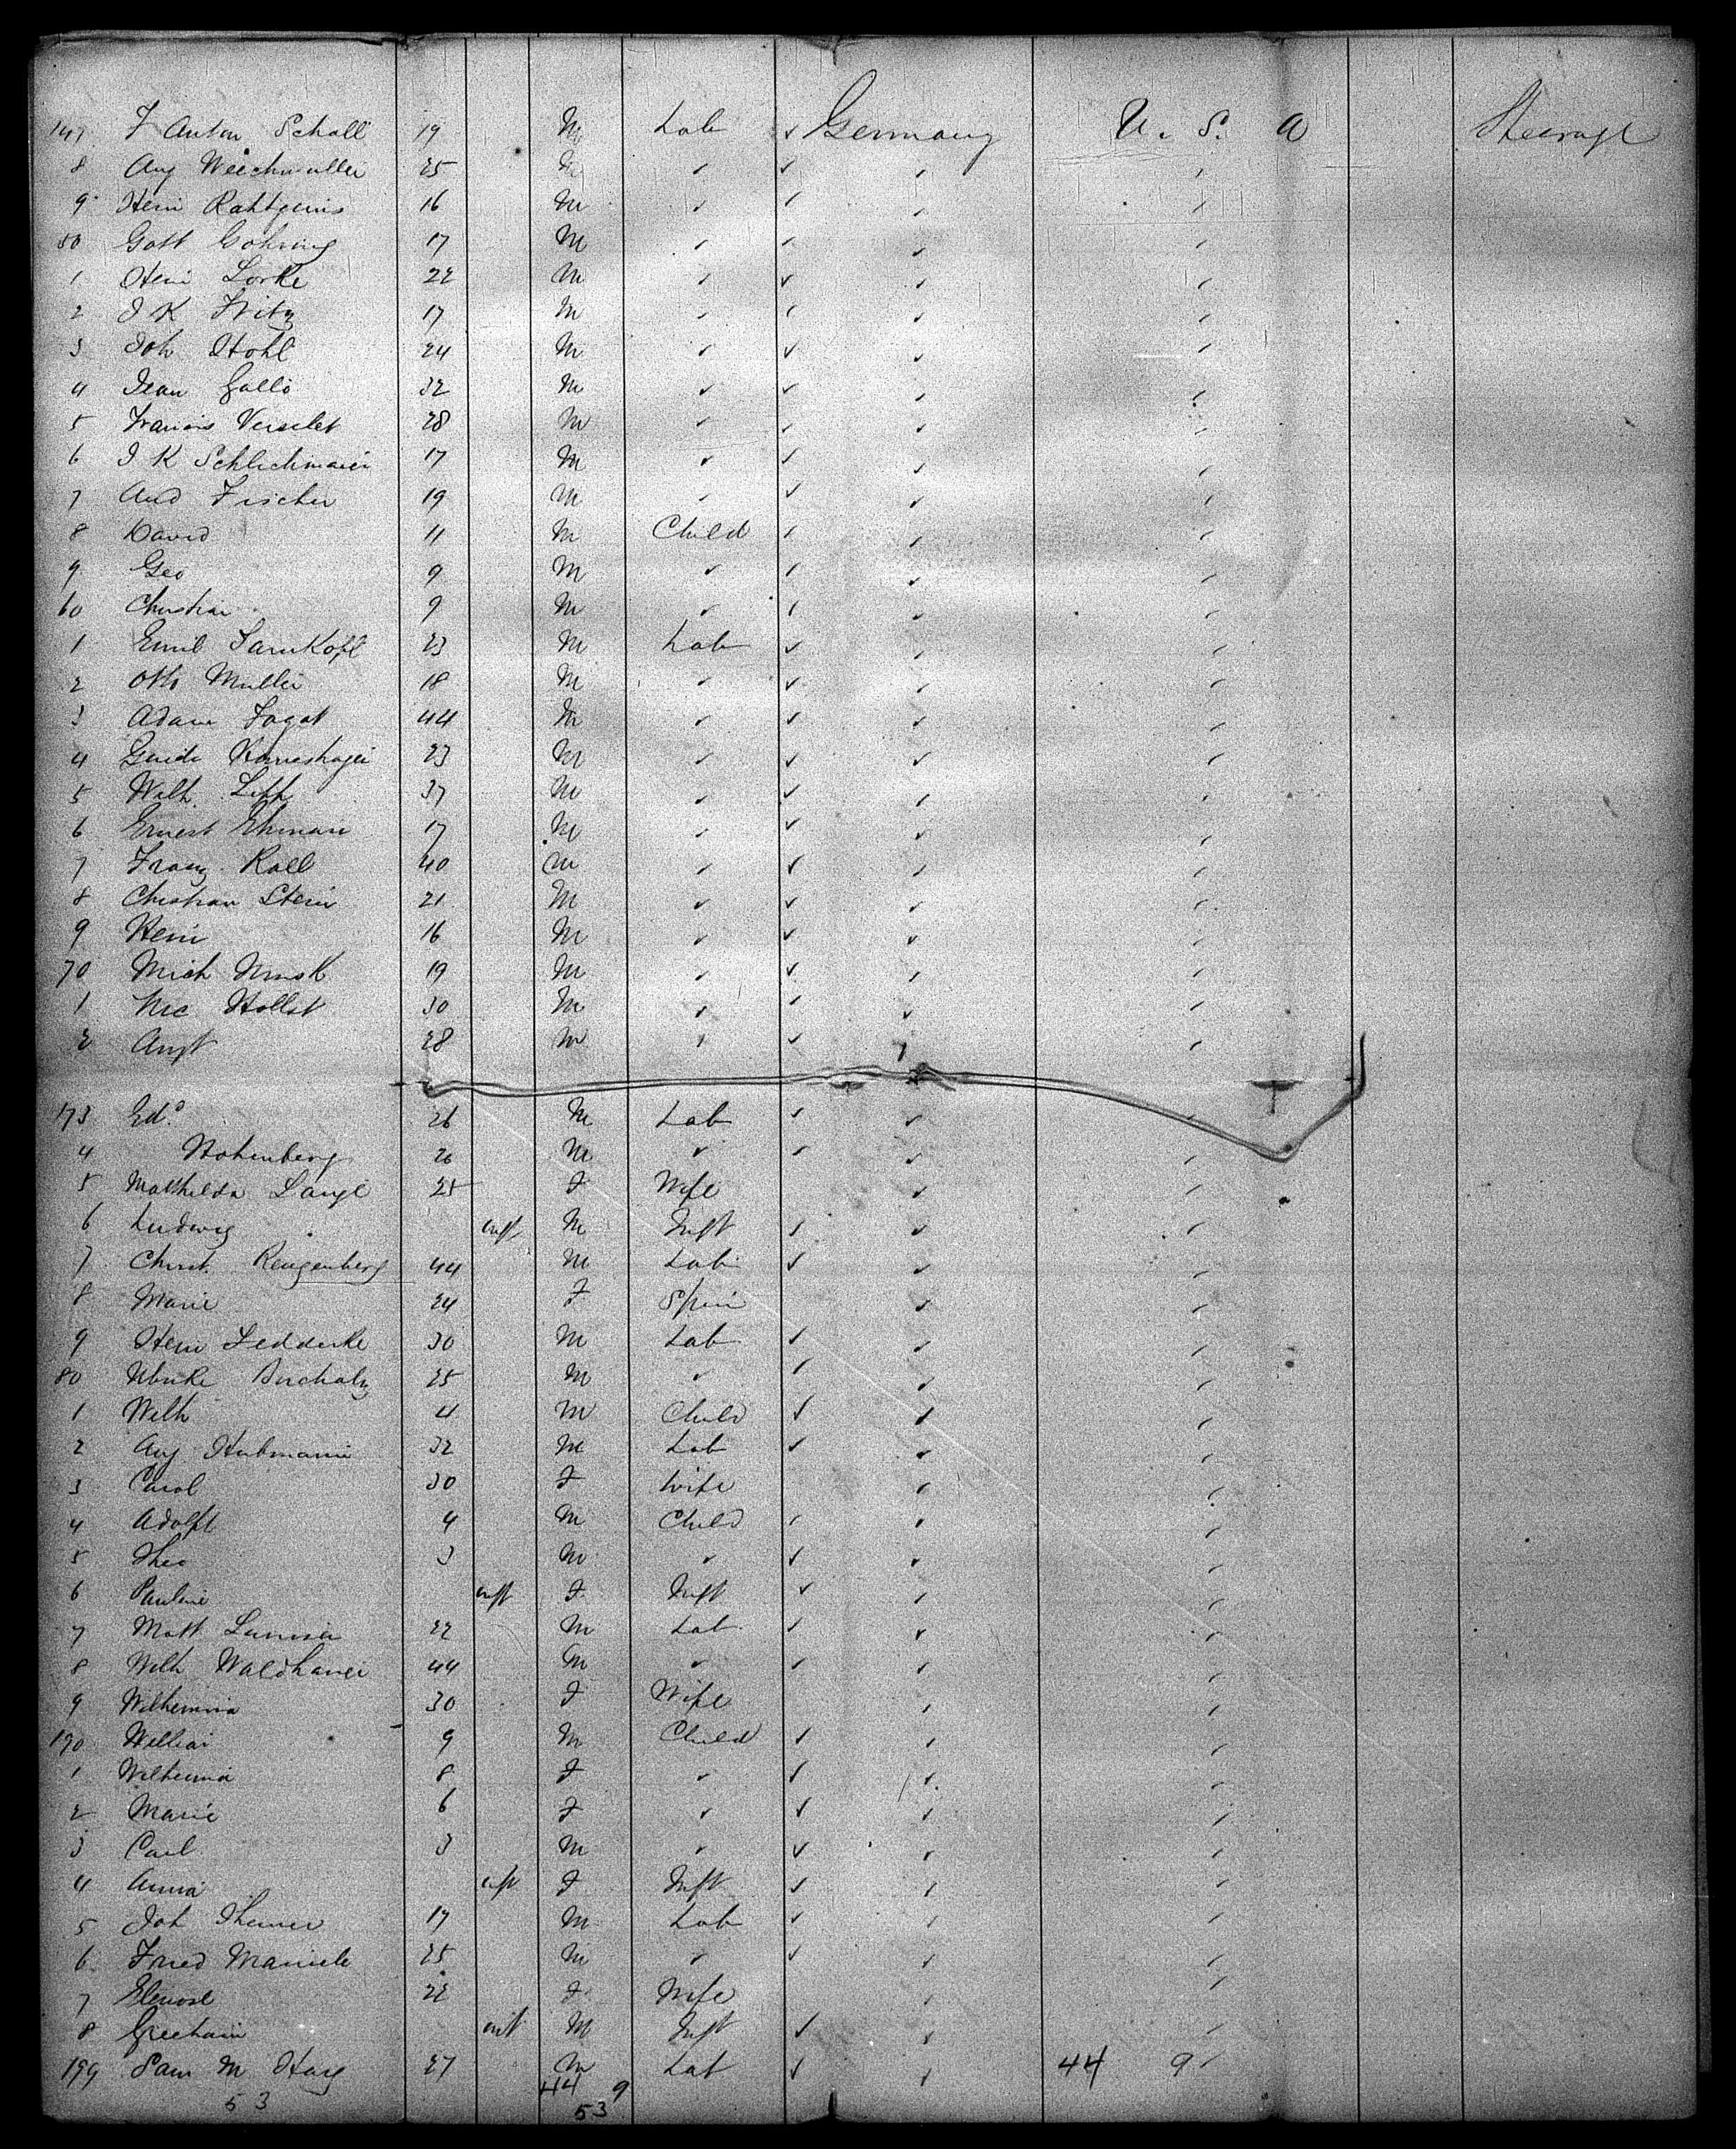 147 F Anton Scholl 19 M Lab ✓ Germany U. S. A Steerage
8 Aug Weichmuller 25 M ✓ ✓ ✓ ✓
9 Henri Rahtgens 16 M ✓ ✓ ✓ ✓
50 Gott Gohring 17 M ✓ ✓ ✓ ✓
1 Henri Lorke 22 M ✓ ✓ ✓ ✓
2 J K Fritz 17 M ✓ ✓ ✓ ✓
3 Joh Hohl 24 M ✓ ✓ ✓ ✓
4 Jean Gallo 32 M ✓ ✓ ✓ ✓
5 Francois Verselet 28 M ✓ ✓ ✓ ✓
6 J K Schlichmaier 17 M ✓ ✓ ✓ ✓
7 And Fischer 19 M ✓ ✓ ✓ ✓
8 David 11 M Child ✓ ✓ ✓
9 Geo 9 M ✓ ✓ ✓ ✓
60 Christian 9 M ✓ ✓ ✓ ✓
1 Emil 23 M Lab ✓ ✓ ✓
2 Otto Muller 18 M ✓ ✓ ✓ ✓
3 Adam 44 M ✓ ✓ ✓ ✓
4 Guido 23 M ✓ ✓ ✓ ✓
5 Wilh. 37 M ✓ ✓ ✓ ✓
6 Ernest Ehman 17 M ✓ ✓ ✓ ✓
7 Franz Roll 40 M ✓ ✓ ✓ ✓
8 Christian Stein 21 M ✓ ✓ ✓ ✓
9 Henri 16 M ✓ ✓ ✓ ✓
70 Mich 19 M ✓ ✓ ✓ ✓
1 Nic Hollst 30 M ✓ ✓ ✓ ✓
2 Augt 28 M ✓ ✓ ✓ ✓
173 Edd 26 M Lab ✓ ✓ ✓
4 Hohenberg 26 M ✓ ✓ ✓ ✓
5 Mathilda Lange 25 F Wife ✓ ✓
6 Ludwig inft M Inft ✓ ✓ ✓
7 Christ. Rengenberg 44 M Lab ✓ ✓ ✓
8 Marie 24 F Spin ✓ ✓
9 Henri Ledderke 30 M Lab ✓ ✓ ✓
80 25 M ✓ ✓ ✓ ✓
1 Wilh 4 M Child ✓ ✓ ✓
2 Aug Hubmann 32 M Lab ✓ ✓ ✓
3 Carol 30 F Wife ✓ ✓
4 Adolft 4 M Child ✓ ✓ ✓
5 Theo 3 M ✓ ✓ ✓ ✓
6 Pauline inft F Inft ✓ ✓ ✓
7 Matt 22 M Lab ✓ ✓ ✓
8 Wilh Waldhauer 44 M ✓ ✓ ✓ ✓
9 Wilhemina 30 F Wife ✓ ✓
190 William 9 M Child ✓ ✓ ✓
1 Wilhemina 8 F ✓ ✓ ✓ ✓
2 Marie 6 F ✓ ✓ ✓ ✓
3 Carl 3 M ✓ ✓ ✓ ✓
4 Anna inft F Inft ✓ ✓ ✓
5 Joh 17 M Lab ✓ ✓ ✓
6 Fried 25 M ✓ ✓ ✓ ✓
7 22 F Wife ✓ ✓
8 inft M Inft ✓ ✓ ✓
199 Sam M Harg 27 M Lab ✓ ✓ 44 9 ✓
53 44 9
53